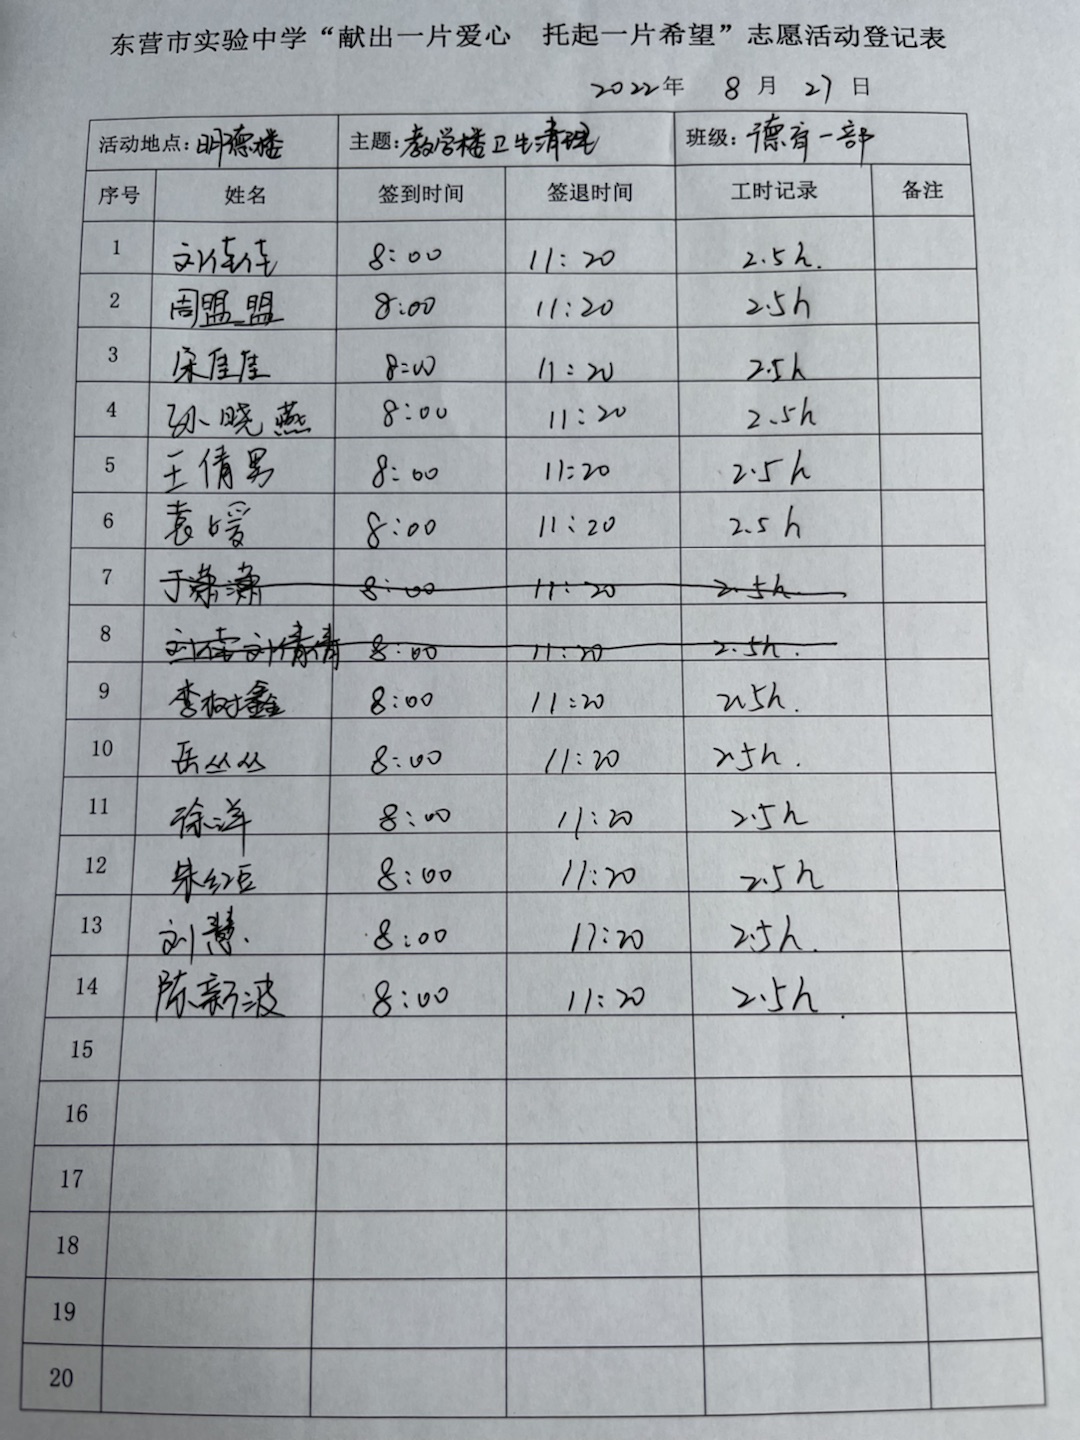 东营市实验中学“献出一片爱心 托起一片希望”志愿活动登记表
2022年 8 月 27 日
活动地点：明德楼 主题：教学楼卫生清理 班级：德育一部
序号 姓名 签到时间 签退时间 工时记录 备注
1 刘佳佳 8:00 11:20 2.5h.
2 周盟盟 8:00 11:20 2.5h
3 宋佳佳 8:00 11:20 2.5h
4 孙晓燕 8:00 11:20 2.5h
5 王倩男 8:00 11:20 2.5h
6 袁媛 8:00 11:20 2.5h
7 于潇潇 8:00 11:20 2.5h.
8 刘倩倩 8:00 11:20 2.5h.
9 李树鑫 8:00 11:20 2.5h.
10 岳丛丛 8:00 11:20 2.5h.
11 徐洋 8:00 11:20 2.5h
12 朱红豆 8:00 11:20 2.5h
13 刘慧 8:00 11:20 2.5h.
14 陈新波 8:00 11:20 2.5h.
15
16
17
18
19
20